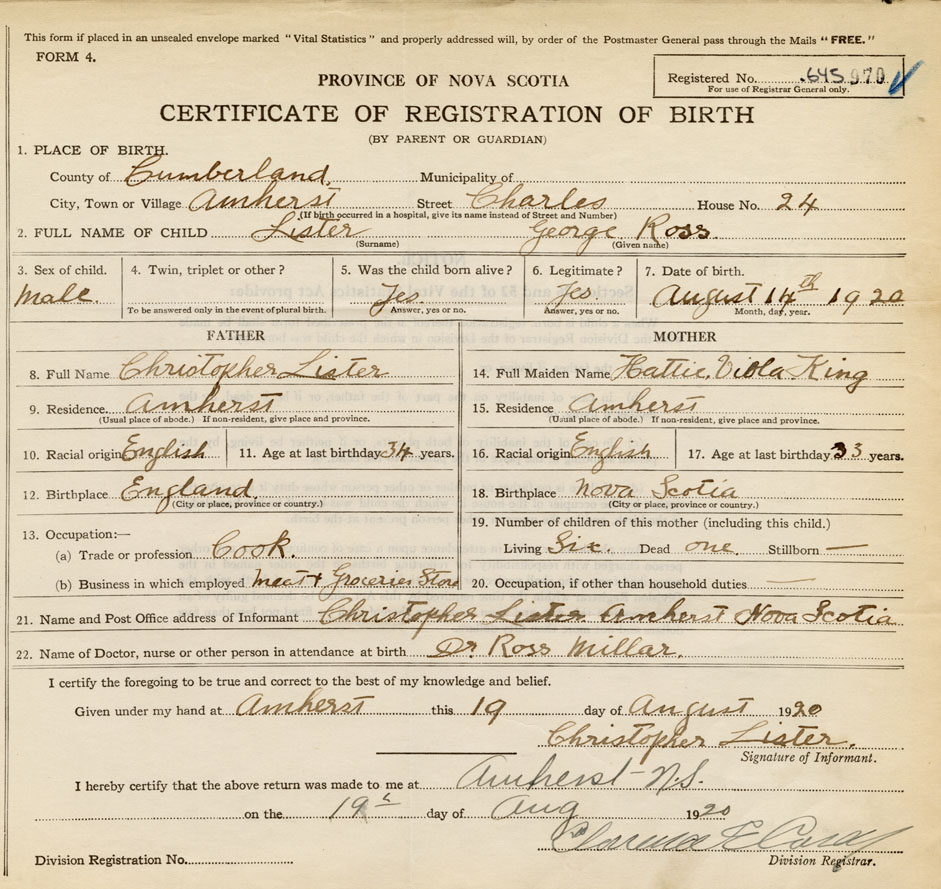 This form if placed in an unsealed envelope marked "Vital Statistics" and properly addressed will, by order of the Postmaster General pass through the Mails "FREE."
FORM 4.
Registered No. 645970
For use of Registrar General only.
PROVINCE OF NOVA SCOTIA
CERTIFICATE OF REGISTRATION OF BIRTH
(BY PARENT OR GUARDIAN)
1. PLACE OF BIRTH.
County of Cumberland Municipality of
City, Town or Village Amherst Street Charles House No. 24
(If birth occurred in a hospital, give its name instead of Street and Number)
2. FULL NAME OF CHILD Lister George Ross
(Surname) (Given name)
3. Sex of child. 4. Twin, triplet or other? 5. Was the child born alive? 6. Legitimate? 7. Date of birth.
Male. Yes Yes. August 14th 1920
To be answered only in the event of plural birth. Answer, yes or no. Answer, yes or no. Month, day, year.
FATHER MOTHER
8. Full Name Christopher Lister 14. Full Maiden Name Hattie Viola King
9. Residence. Amherst 15. Residence Amherst
(Usual place of abode.) If non-resident, give place and province. (Usual place of abode.) If non-resident, give place and province.
10. Racial origin English 11. Age at last birthday 34 years. 16. Racial origin English 17. Age at last birthday 33 years.
12. Birthplace England 18. Birthplace Nova Scotia
(City or place, province or country.) (City or place, province or country.)
13. Occupation:— 19. Number of children of this mother (including this child.)
(a) Trade or profession Cook. Living Six. Dead one. Stillborn —
(b) Business in which employed Meat & Groceries Store 20. Occupation, if other than household duties —
21. Name and Post Office address of Informant Christopher Lister Amherst Nova Scotia
22. Name of Doctor, nurse or other person in attendance at birth Dr Ross Millar.
I certify the foregoing to be true and correct to the best of my knowledge and belief.
Given under my hand at Amherst this 19 day of August 1920
Christopher Lister.
Signature of Informant.
I hereby certify that the above return was made to me at Amherst N.S.
on the 19th day of Aug 1920
Division Registration No.
Division Registrar.